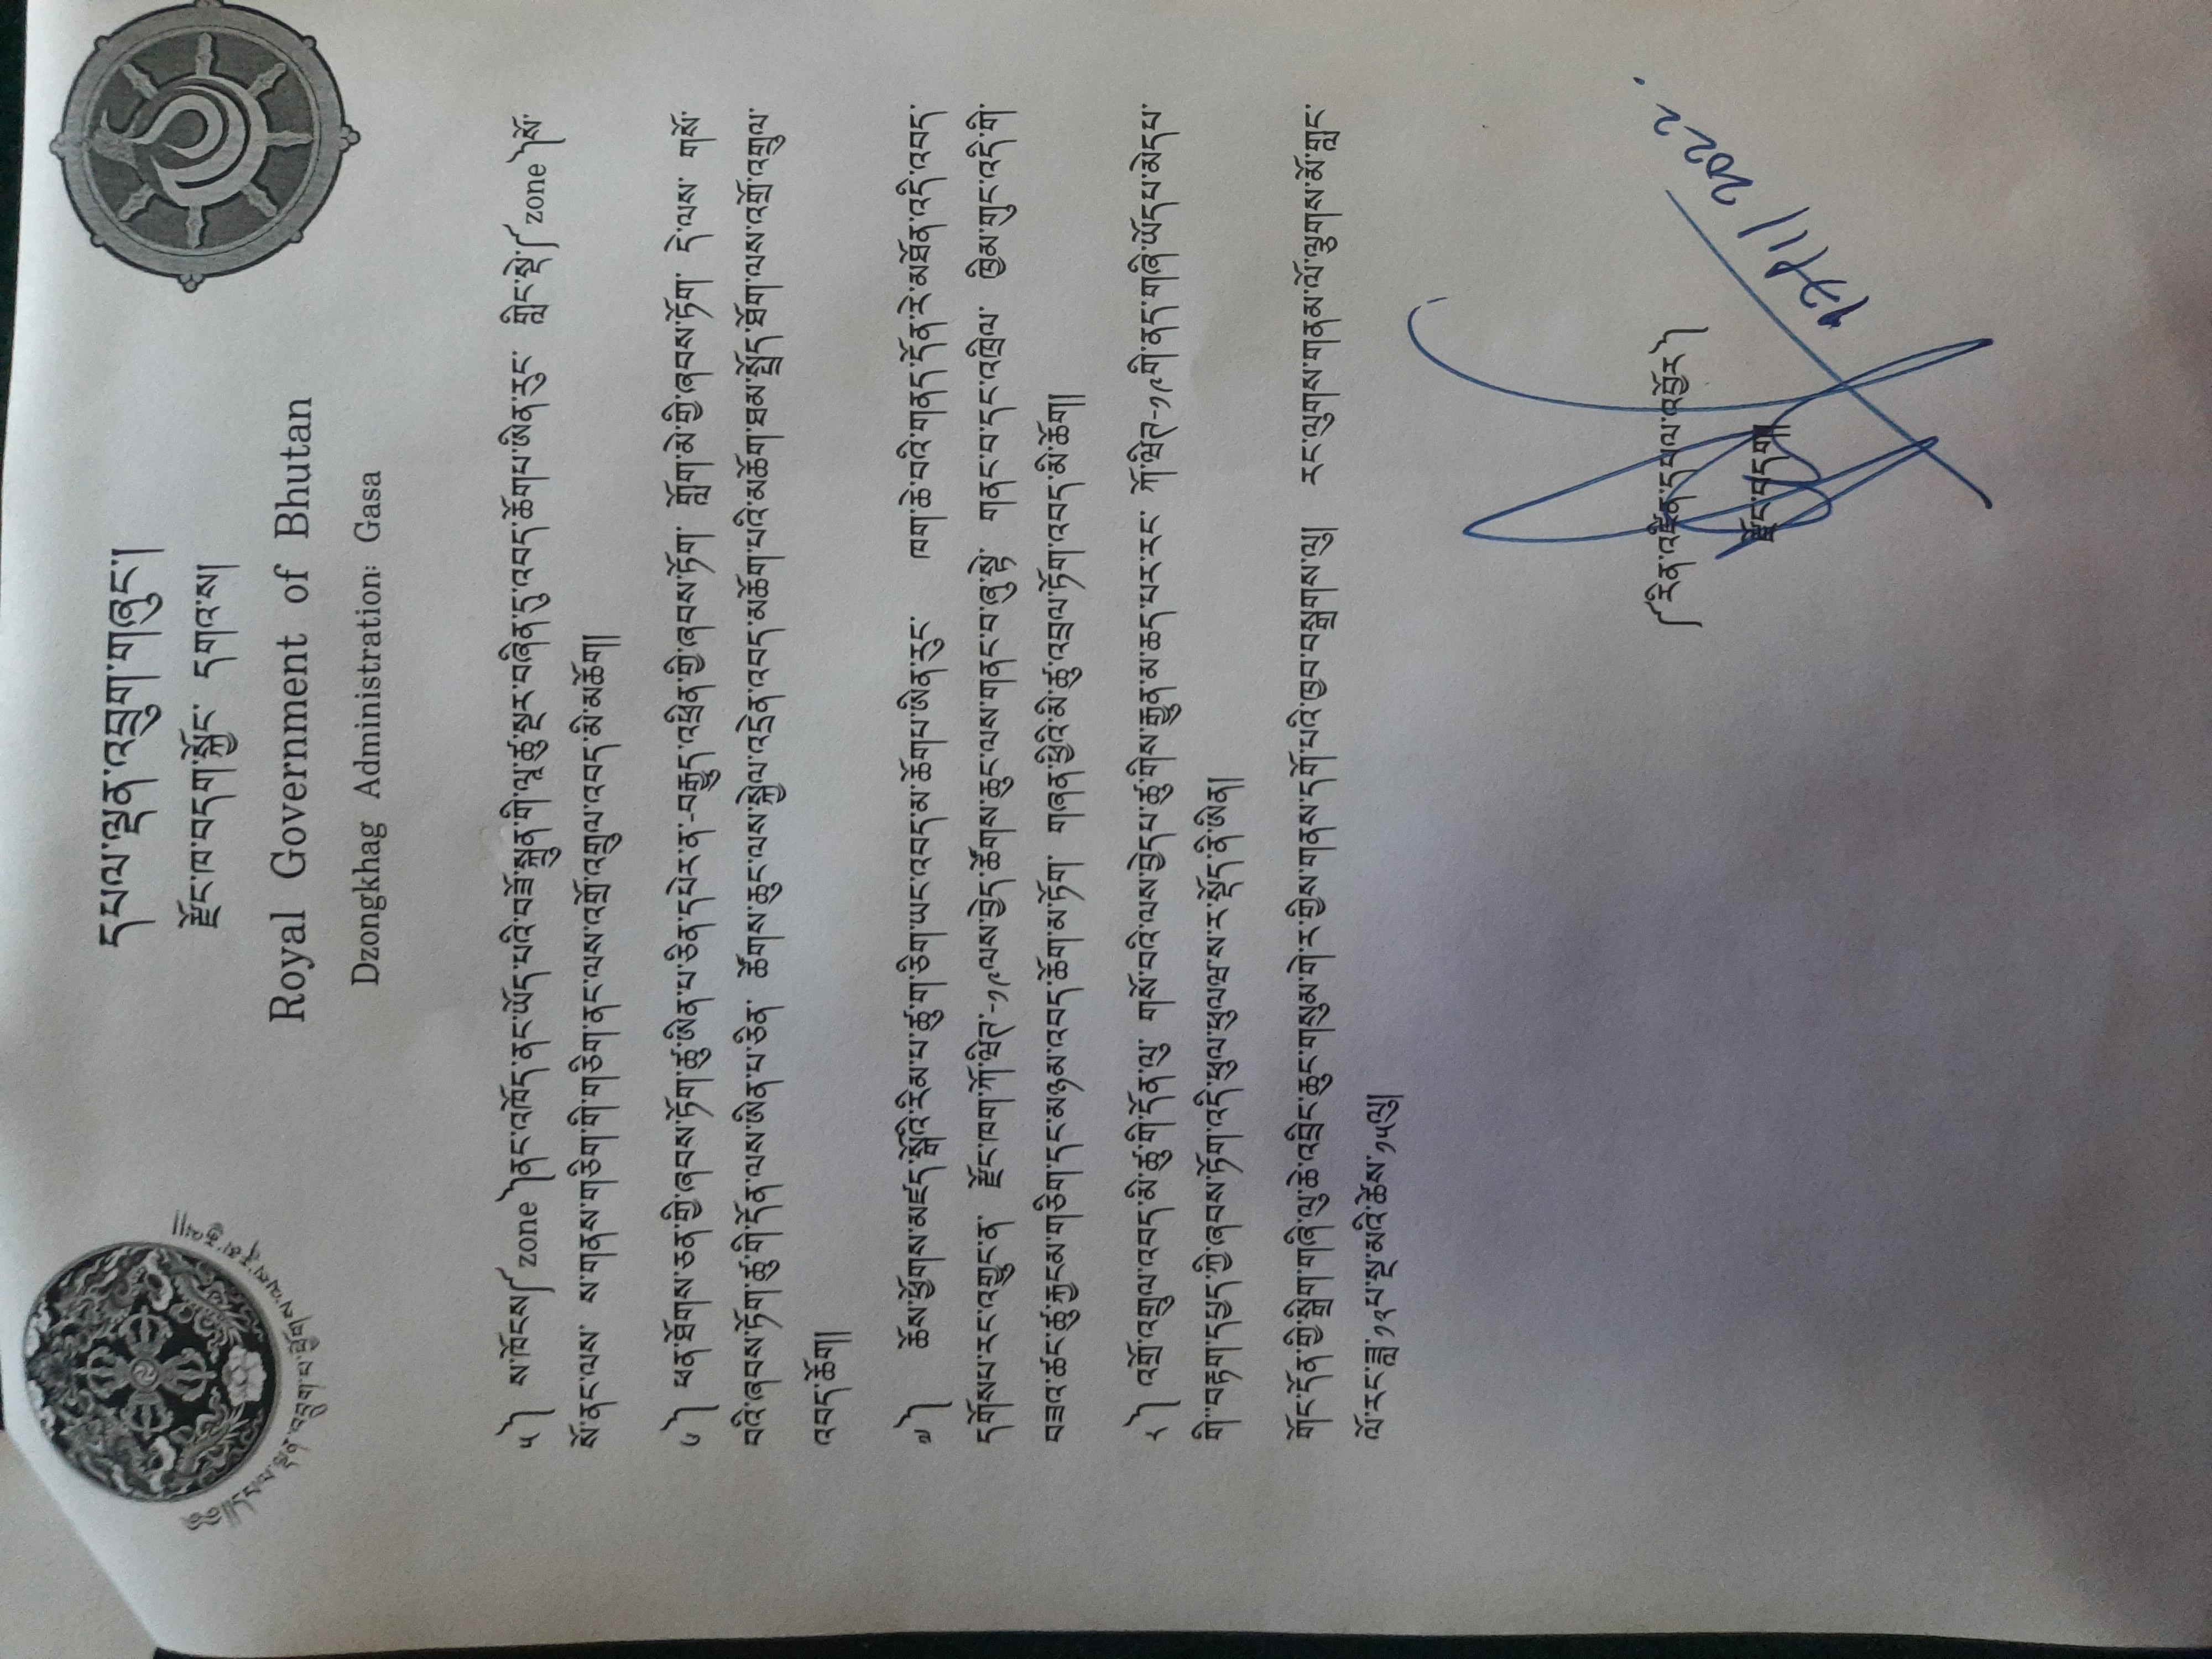 དཔལ་ལྡན་འབྲུག་གཞུང་།
རྫོང་ཁ་བདག་སྐྱོང་ དགའ་ས།
Royal Government of Bhutan
Dzongkhag Administration: Gasa
༥༽ ས་ཁོངས༼ zone ༽ནང་འཁོད་ནང་ཡོད་པའི་བཟོ་སྐྲུན་གི་ལཱ་ཚུ་སྔར་བཞིན་དུ་འབད་ཆོགཔ་ཨིན་རུང་ གླིང་སྡེ༼ zone ༽སོ་
སོ་ནང་ལས་ ས་གནས་གཅིག་གི་གཅིག་ནང་ལས་འགྲོ་འགྲུལ་འབད་མི་མཆོག།
༦༽ ཕན་ཐོགས་ཅན་གྱི་ཞབས་ཏོག་ཚུ་ཨིན་པ་ཅིན་དཔེར་ན་-བརྒྱུད་འཕྲིན་གྱི་ཞབས་ཏོག་ གློག་མེ་གྱི་ཞབས་ཏོག་ དེ་ལས་ གསོ་
བའི་ཞབས་ཏོག་ཚུ་གི་དོན་ལས་ཨིན་པ་ཅིན་ ཚོགས་ཆུང་ལས་སྐྱེལ་འདྲེན་འབད་མཆོག་པའི་མཆོག་ཐམ་སྤྲོད་ཐོག་ལས་འགྲོ་འགྲུལ་
འབད་ཆོག།
༧༽ ཆོས་ཕྱོགས་མཛད་སྒོའི་རིམ་པ་ཚུ་ག་ཅིག་ཡང་འབད་མ་ཆོགཔ་ཨིན་རུང་ ཁག་ཆེ་བའི་གནད་དོན་རེ་མཐོན་འདི་འབད་
དགོསཔ་རང་འགྱུར་ན་ རྫོང་ཁག་ཀོ་ཝིཌ་-༡༩ལས་བྱེད་ཚོགས་ཆུང་ལས་གནང་བ་ཞུ་སྟེ་ གནང་བ་དང་འཁྲིལ་ ཁྱིམ་གུང་འདི་གི་
བཟའ་ཚང་ཚུ་རྐྱངམ་གཅིག་དང་མཉམ་འབད་ཆོག་མ་ཏོག་ གཞན་ཕྱིའི་མི་ཚུ་འབྲལ་ཏོག་འབད་མི་ཆོག།
༨༽ འགྲོ་འགྲུལ་འབད་མི་ཚུ་གི་དོན་ལུ་ གསོ་བའི་ལས་བྱེདཔ་ཚུ་གིས་རྒྱུན་མ་ཆད་པར་རང་ ཀོ་ཝིཌ་-༡༩གི་ནད་གཞི་ཡོདཔ་མེདཔ་
གི་བརྟག་དཔྱད་ཀྱི་ཞབས་ཏོག་འདི་ཕུལ་ཕུལཝ་ས་ར་སྤྲོད་ནི་ཨིན།
གོང་དོན་གྱི་སྒྲིག་གཞི་ལུ་ཆེ་འབྲིང་ཆུང་གསུམ་ག་ར་གྱིས་གནས་དགོ་པའི་ཁྱབ་བསྒྲགས་ལུ།  རང་ལུགས་གནམ་ལོ་ལྕགས་མོ་གླང་
ལོ་རང་ཟླ་༡༢པ་སྔ་མའི་ཚེས་༡༥ལུ།
༼ རིན་འཛིན་དཔལ་འབྱོར ༽
རྫོང་བདག།
17/1/2022